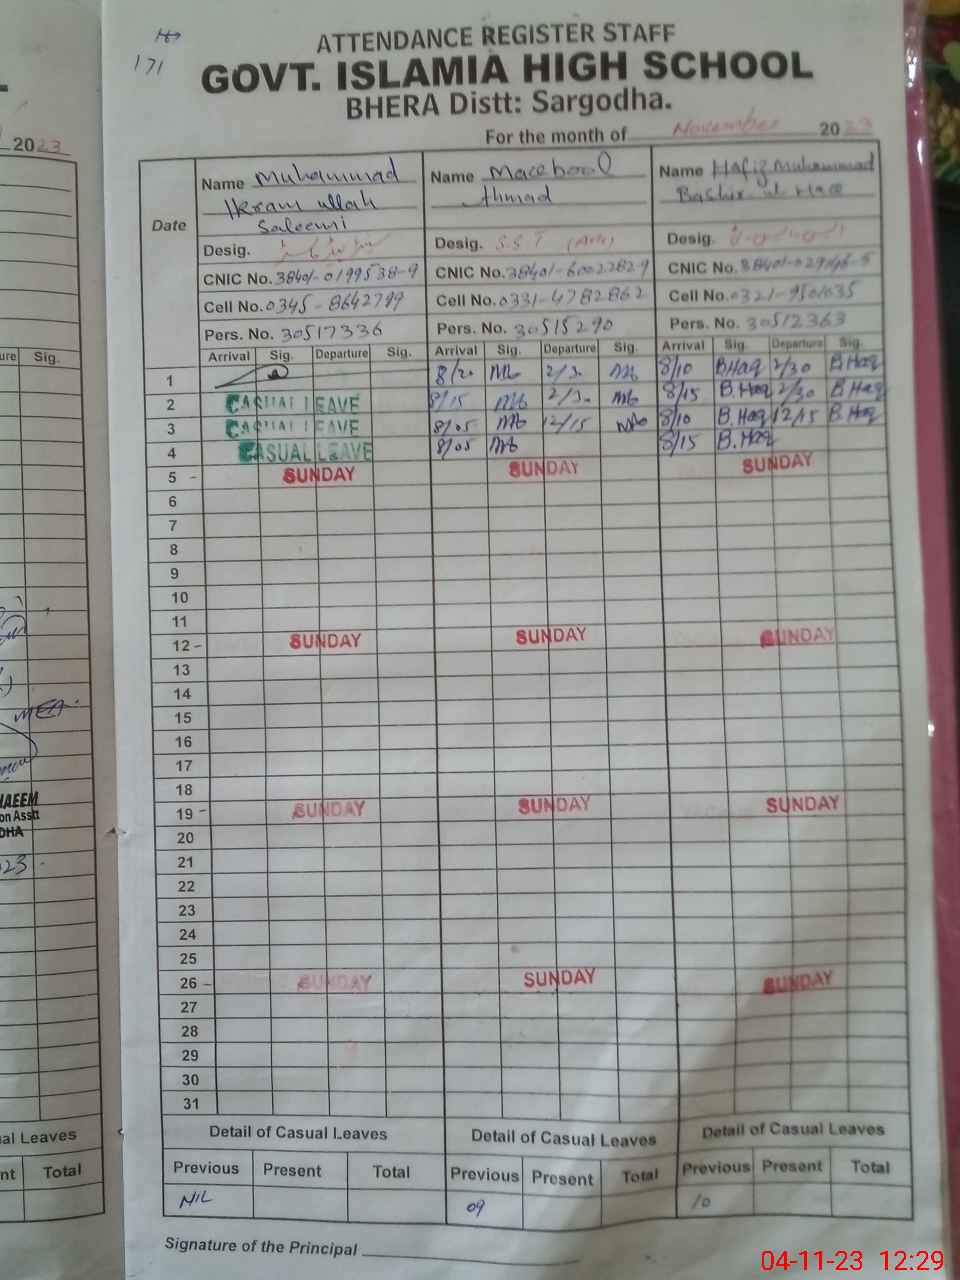 171
ATTENDANCE REGISTER STAFF
GOVT. ISLAMIA HIGH SCHOOL
BHERA Distt: Sargodha.
For the month of November 2023
Date
Name Muhammad
Ikram ullah
Saleemi
Desig.
CNIC No. 38401-0199538-9
Cell No. 0345-8642799
Pers. No. 30517336
Name Maqbool
Ahmad
Desig. S.S.T (Arts)
CNIC No. 38401-6002282-9
Cell No. 0331-4782862
Pers. No. 30515290
Name Hafiz Muhammad
Bashir ul Haq
Desig.
CNIC No.
Cell No.
Pers. No. 30512363
Arrival Sig. Departure Sig. Arrival Sig. Departure Sig. Arrival Sig. Departure Sig.
1 8/20 2/30 8/10 B.Haq 2/30 B.Haq
2 CASUAL LEAVE 8/15 2/30 8/15 B.Haq 2/30 B.Haq
3 CASUAL LEAVE 8/05 12/15 8/10 B.Haq 12/15 B.Haq
4 CASUAL LEAVE 8/05 8/15 B.Haq
5 - SUNDAY SUNDAY SUNDAY
6
7
8
9
10
11
12 - SUNDAY SUNDAY SUNDAY
13
14
15
16
17
18
19 - SUNDAY SUNDAY SUNDAY
20
21
22
23
24
25
26 - SUNDAY SUNDAY SUNDAY
27
28
29
30
31
Detail of Casual Leaves Detail of Casual Leaves Detail of Casual Leaves
Previous Present Total Previous Present Total Previous Present Total
NIL 09 10
Signature of the Principal
2023
ure Sig.
MEA
HAEEM
on Asstt
DHA
23
al Leaves
nt Total
04-11-23 12:29